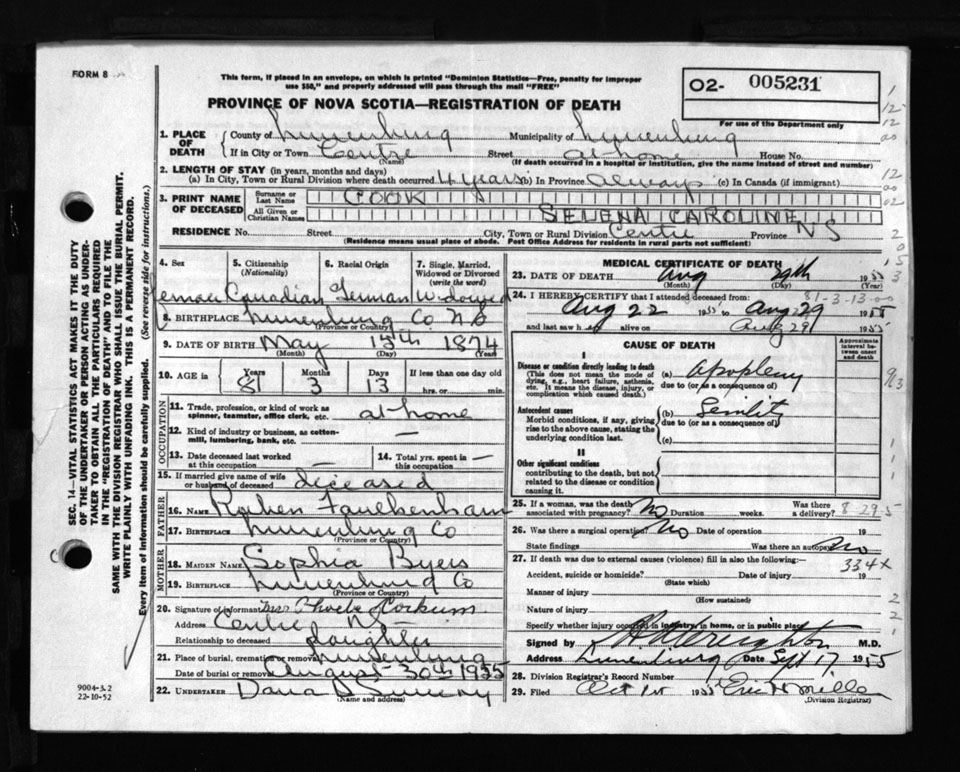 FORM 8
This form, if placed in an envelope, on which is printed "Dominion Statistics—Free, penalty for improper
use $50," and properly addressed will pass through the mail "FREE"
O2- 005231
For use of the Department only
PROVINCE OF NOVA SCOTIA—REGISTRATION OF DEATH
1. PLACE OF DEATH
County of Lunenburg Municipality of Lunenburg
If in City or Town Centre (Name) Street at home House No.
(If death occurred in a hospital or institution, give the name instead of street and number)
2. LENGTH OF STAY (in years, months and days)
(a) In City, Town or Rural Division where death occurred 4 years (b) In Province always (c) In Canada (if immigrant)
3. PRINT NAME OF DECEASED
Surname or Last Name COOK
All Given or Christian Names SELENA CAROLINE
RESIDENCE No. Street City, Town or Rural Division Centre Province NS
(Residence means usual place of abode. Post Office Address for residents in rural parts not sufficient)
4. Sex 5. Citizenship (Nationality) 6. Racial Origin 7. Single, Married, Widowed or Divorced (write the word)
Female Canadian German Widowed
8. BIRTHPLACE Lunenburg Co N.S
(Province or Country)
9. DATE OF BIRTH May 15th 1874
(Month) (Day) (Year)
10. AGE in Years Months Days If less than one day old
81 3 13 hrs. or min.
OCCUPATION
11. Trade, profession, or kind of work as spinner, teamster, office clerk, etc. at home
12. Kind of industry or business, as cotton-mill, lumbering, bank, etc. —
13. Date deceased last worked at this occupation —
14. Total yrs. spent in this occupation —
15. If married give name of wife or husband of deceased deceased
FATHER
16. NAME Ruben Faulkenham
17. BIRTHPLACE Lunenburg Co
(Province or Country)
MOTHER
18. MAIDEN NAME Sophia Byers
19. BIRTHPLACE Lunenburg Co
(Province or Country)
20. Signature of informant Mrs Phoebe Corkum
Address Centre NS
Relationship to deceased daughter
21. Place of burial, cremation or removal Lunenburg
Date of burial or removal August 30th 1955
22. UNDERTAKER Dana Sweeny
(Name and address)
MEDICAL CERTIFICATE OF DEATH
23. DATE OF DEATH Aug 29th 1955
(Month) (Day)
24. I HEREBY CERTIFY that I attended deceased from:
81-3-13-00
Aug 22 1955 to Aug 29 1955
and last saw h er alive on Aug 29 1955
CAUSE OF DEATH
Approximate interval between onset and death
I
Disease or condition directly leading to death
(This does not mean the mode of dying, e.g., heart failure, asthenia, etc. It means the disease, injury, or complication which caused death.)
(a) Apoplexy
due to (or as a consequence of)
Antecedent causes
Morbid conditions, if any, giving rise to the above cause, stating the underlying condition last.
(b) Senility
due to (or as a consequence of)
(c)
II
Other significant conditions
contributing to the death, but not related to the disease or condition causing it.
25. If a woman, was the death associated with pregnancy? No Duration weeks. Was there a delivery?
8-29-5
26. Was there a surgical operation? No Date of operation 19
State findings Was there an autopsy? No
27. If death was due to external causes (violence) fill in also the following:—
334X
Accident, suicide or homicide? Date of injury 19
(State which)
Manner of injury
(How sustained)
Nature of injury
Specify whether injury occurred in industry, in home, or in public place
Signed by Creighton M.D.
Address Lunenburg Date Sept 17 1955
28. Division Registrar's Record Number
29. Filed Oct 1st 1955 Eric H Mills
(Division Registrar)
9004-3.2
22-10-52
SEC. 14—VITAL STATISTICS ACT MAKES IT THE DUTY
OF THE UNDERTAKER OR PERSON ACTING AS UNDER-
TAKER TO OBTAIN ALL THE PARTICULARS REQUIRED
IN THE "REGISTRATION OF DEATH" AND TO FILE THE
SAME WITH THE DIVISION REGISTRAR WHO SHALL ISSUE THE BURIAL PERMIT.
WRITE PLAINLY WITH UNFADING INK. THIS IS A PERMANENT RECORD.
Every item of information should be carefully supplied. (See reverse side for instructions.)